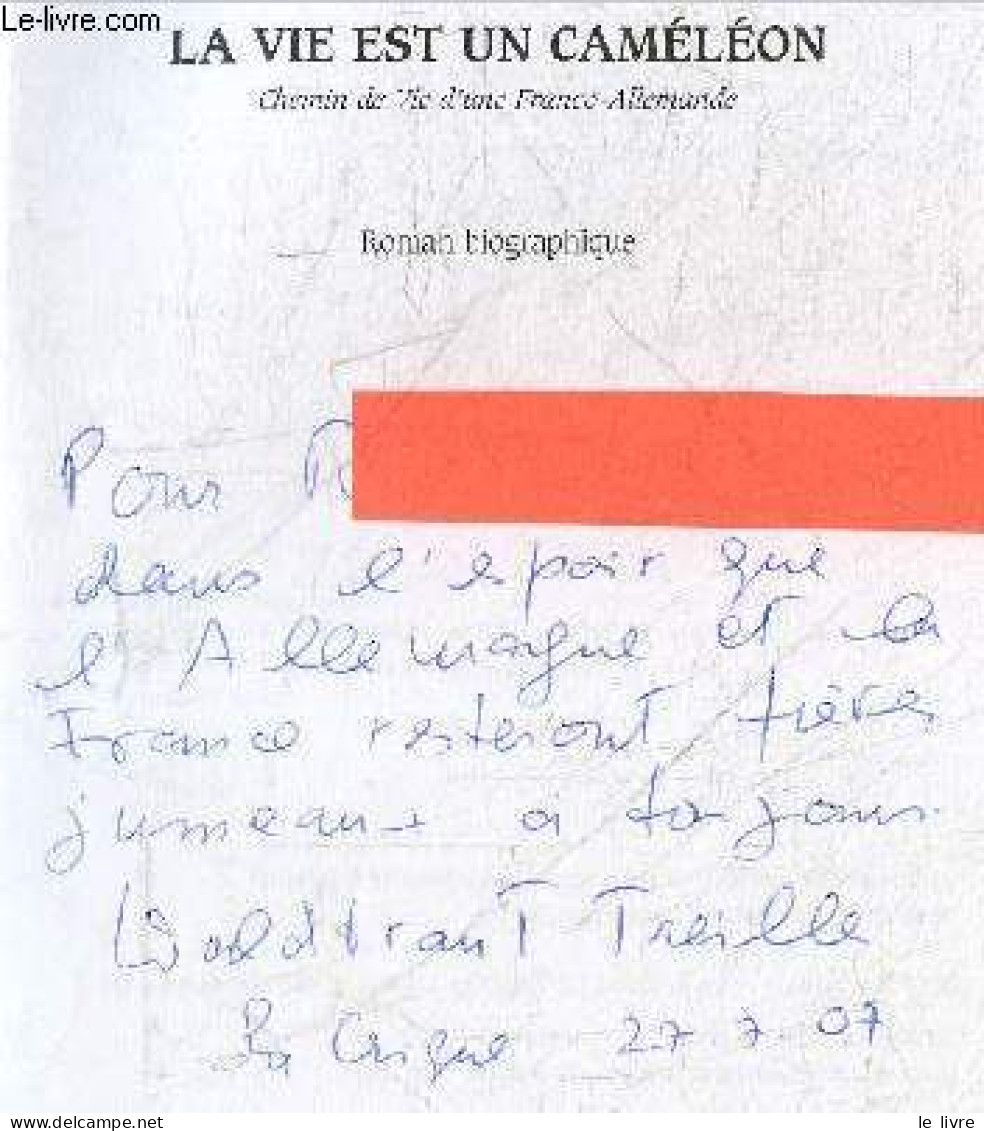 Le-livre.com
LA VIE EST UN CAMÉLÉON
Chemin de Vie d'une Franco-Allemande
Roman biographique
Pour R
dans l'espoir que
l'Allemagne et la
France resteront frères
jumeaux à toujours
Waldtraut Treilles
27.7.07
le livre